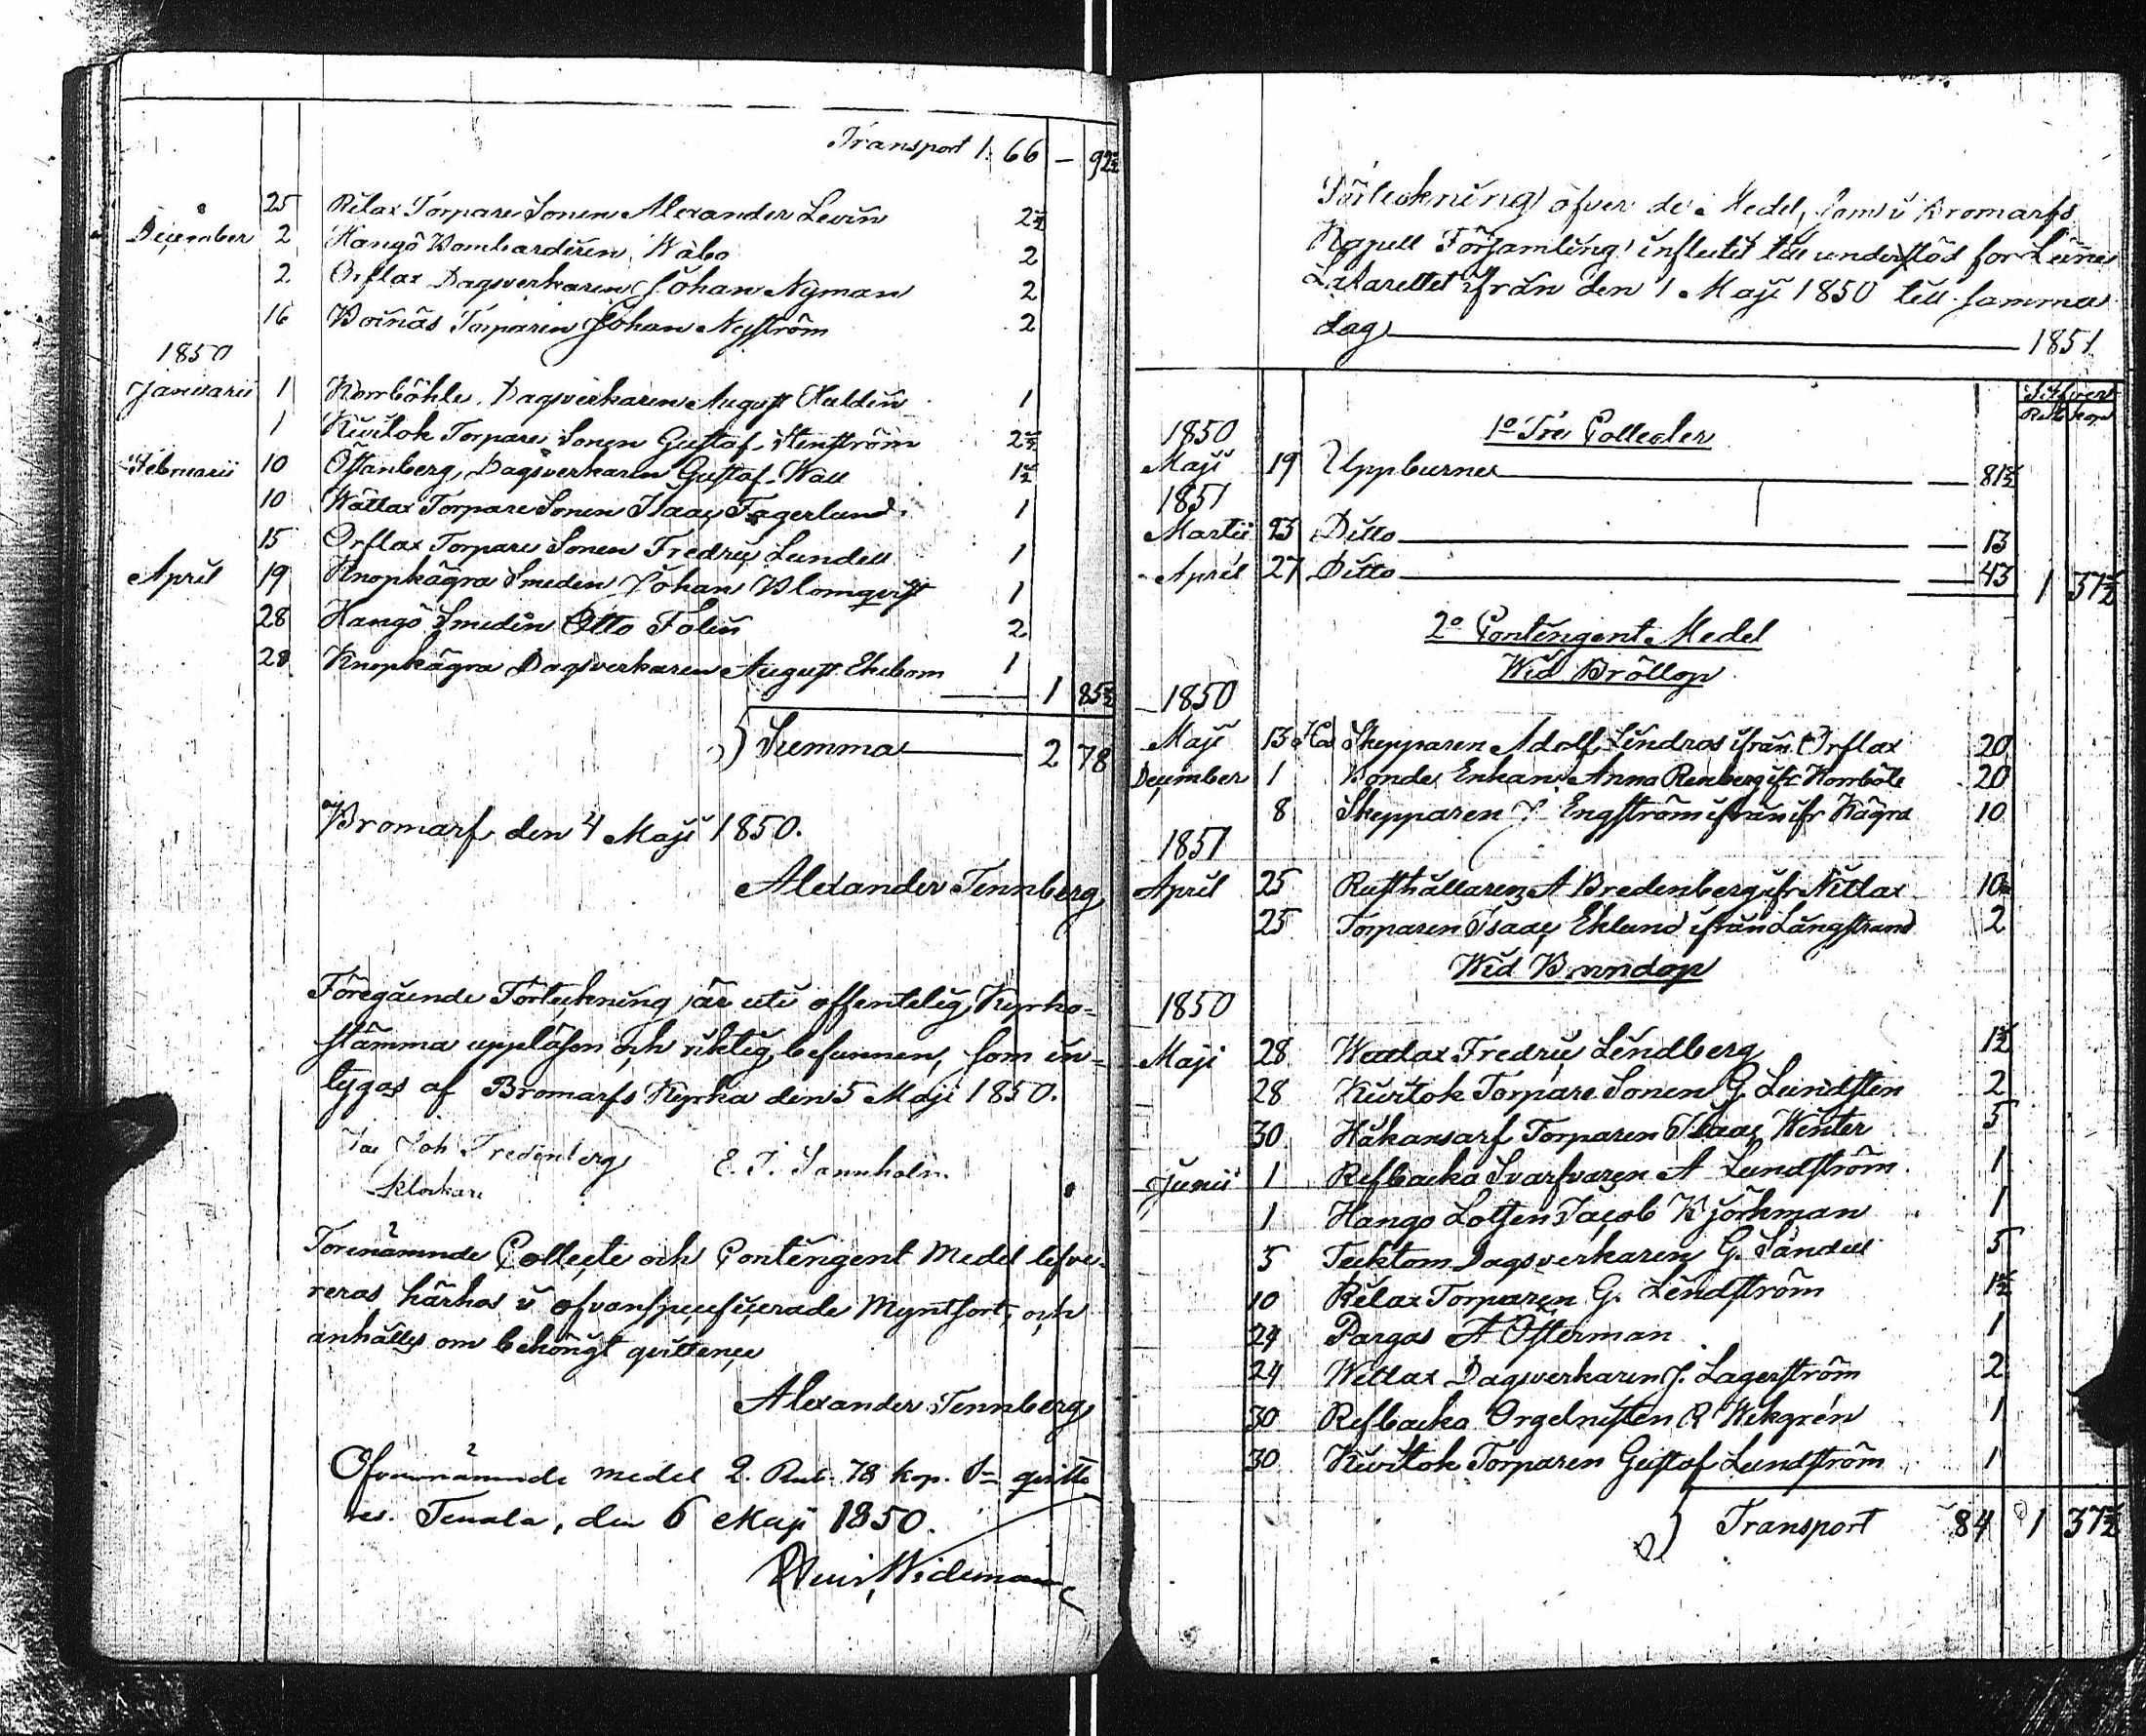 Transport 1. 66 — 92½
25 Rilax Torpare Sonen Alexander Levin 2½
December 2 Hangö Bombardiren Wåbo 2
2 Orflax Dagsverkaren Johan Nyman 2
16 Boinäs Torparen Johan Nyström 2
1850
Januarii 1 Komböhle Dagsverkaren August Huldin 1
1 Kuitok Torpare Sonen Gustaf Stenström 2½
Februarii 10 Öfvanberg Dagsverkaren Gustaf Wall 1½
10 Wättlax Torpare Sonen Isaac Fagerlund 1
15 Orflax Torpare Sonen Fredric Lundell 1
April 19 Knopkägra Smeden Johan Blomqvist 1
28 Hangö Smeden Otto Folin 2
28 Knopkägra Dagsverkaren August Ekebom 1
1 85½
Summa 2 78
Bromarf den 4 Maji 1850.
Alexander Tennberg
Föregående Förteckning är uti offentelig Kyrko-
stämma uppläsen och riktig befunnen, som in-
tygas af Bromarfs Kyrka den 5 Maji 1850.
Joh Fredenberg E. J. Sannholm.
Klockare
Förenämnde Collecte och Contingent Medel lefve-
reras härhos i ofvanspecificerade Myntsort, och
anhålles om behörigt qvittence
Alexander Tennberg
Ofvannämnde medel 2. Rub. 78 kop. Sr qvitte-
res. Tenala, den 6 Maji 1850.
Widemann
Förteckning öfver de Medel, som i Bromarfs
Kapell Församling influtit till understöd for Läns
Lazarettet ifrån den 1 Maji 1850 till samma
dag 1851
Silfver
Rub Kop
1o Tre Collecter
1850
Maji 19 Uppburne 81½
1851
Martii 23 Ditto 13
April 27 Ditto 43 1 37½
2o Contingent Medel
Wid Bröllop
1850
Maji 13 Hos Skepparen Adolf Lindros ifrån Orflax 20
December 1 Bonde Enkan Anna Renberg ifr Komböle 20
8 Skepparen J Engström ifrån ifr Kägra 10
1851
April 25 Rusthållaren A Bredenberg ifr Nitlax 10
25 Torparen Isaac Eklund ifrån Långstrand 2
Wid Barndop
1850
Maji 28 Wättlax Fredric Lindberg 1½
28 Kuitok Torpare Sonen G. Lundsten 2
30 Håkansarf Torparen Isaac Winter 5
Junii 1 Refbacka Svarfvaren A Lundström 1
1 Hangö Lotsen Jacob Björkman 1
5 Tecktom Dagsverkaren G. Sandell 5
10 Rilax Torparen G. Lindström 1½
24 Pargas A Österman 1
24 Wettlax Dagsverkaren J. Lagerström 2
30 Refbacka Orgelnisten R Wikgrén 1
30 Kuitok Torparen Gustaf Lundström 1
Transport 84 1 37½